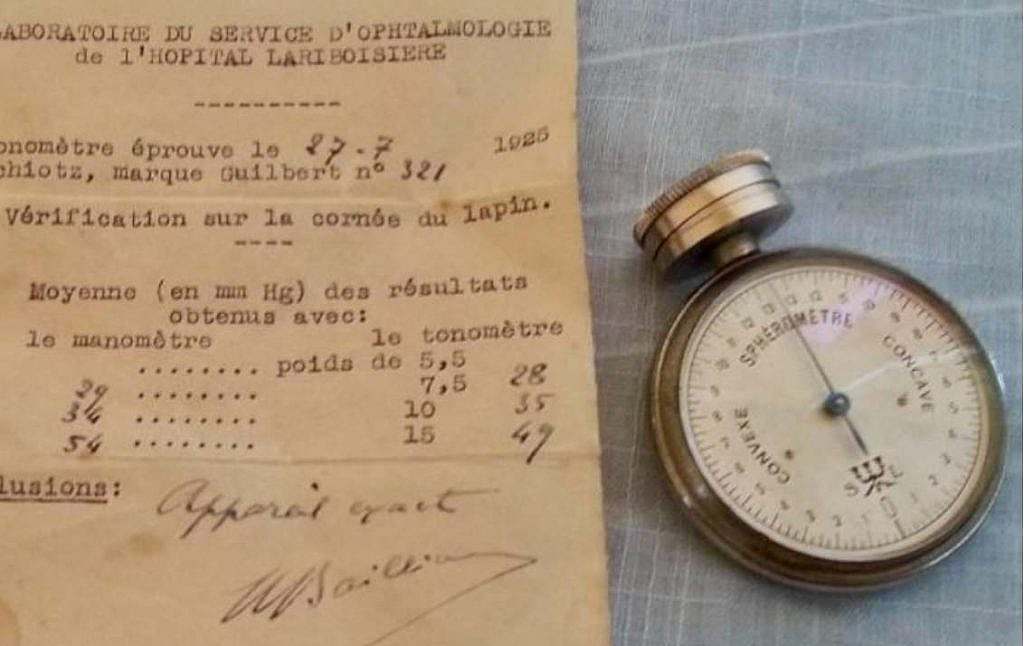 LABORATOIRE DU SERVICE D'OPHTALMOLOGIE
de l'HOPITAL LARIBOISIERE
----------
onomètre éprouve le 27-7 1925
chiotz, marque Guilbert n° 321
Vérification sur la cornée du lapin.
----
Moyenne (en mm Hg) des résultats
obtenus avec:
le manomètre le tonomètre
........ poids de 5,5
29 ........ 7,5 28
34 ........ 10 35
54 ........ 15 49
lusions:
Appareil exact
SPHÉROMÈTRE
CONCAVE
CONVEXE
S L